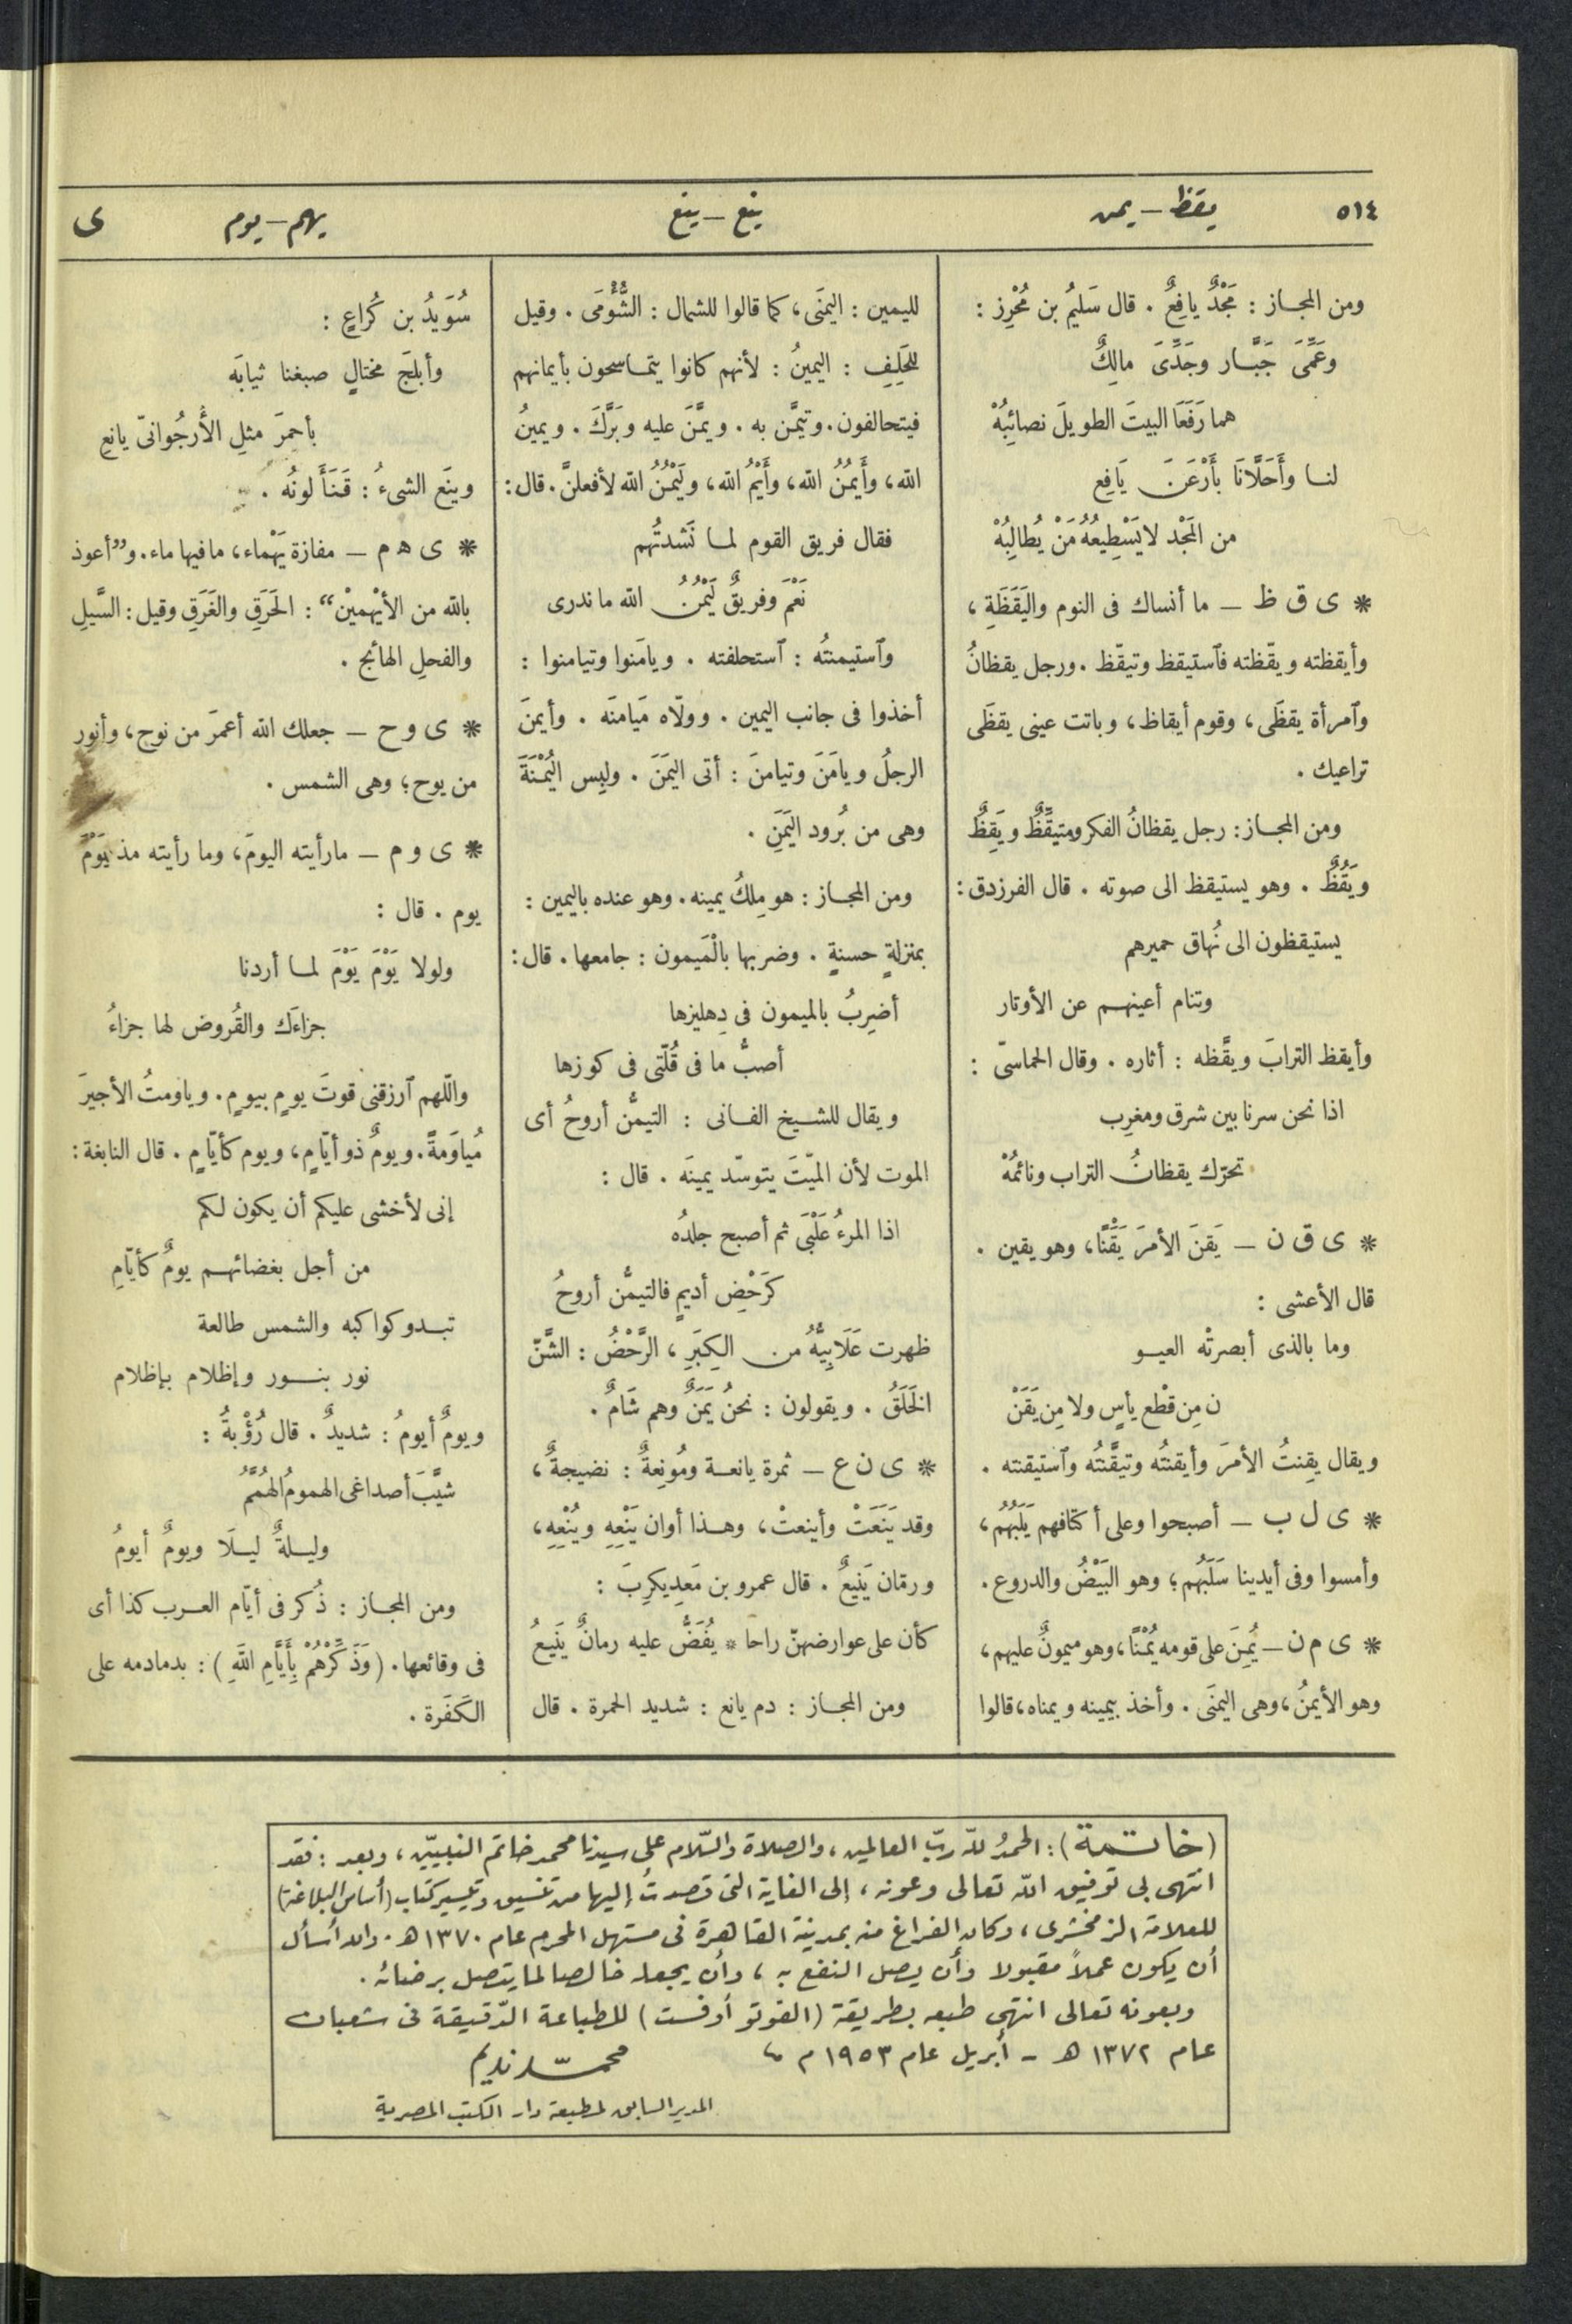 ٥١٤
يقظ - يمن
ينع - ينع
يهم - يوم
ى
ومن المجاز : مَجْدٌ يافِعٌ . قال سَليمُ بن مُحْرِز :
وعَمِّىَ جَبَّار وجَدِّىَ مالِكٌ
هما رَفَعَا البيتَ الطويلَ نصائِبُهْ
لنا وأَحَلَّانَا بأَرْعَنَ يَافِع
من المَجْد لا يَسْطِيعُهُ مَنْ يُطالِبُهْ
* ى ق ظ — ما أنساك فى النوم واليَقَظَةِ ،
وأيقظته ويقّظته فٱستيقظ وتيقّظ . ورجل يقظانُ
وٱمرأة يقظَى ، وقوم أيقاظ ، وباتت عينى يقظَى
تراعيك .
ومن المجاز : رجل يقظانُ الفكر ومتيقِّظٌ ويَقِظٌ
ويَقُظٌ . وهو يستيقظ الى صوته . قال الفرزدق :
يستيقظون الى نُهاق حميرهم
وتنام أعينهم عن الأوتار
وأيقظ الترابَ ويقَّظه : أثاره . وقال الحماسىّ :
اذا نحن سرنا بين شرق ومغرِب
تحرّك يقظانُ التراب ونائمُهْ
* ى ق ن — يَقنَ الأمرَ يَقْنًا ، وهو يقين .
قال الأعشى :
وما بالذى أبصرتْه العيو
ن مِن قَطْع يأسٍ ولا مِن يَقَنْ
ويقال يقِنتُ الأمرَ وأيقنتُه وتيقَّنتُه وٱستيقنته .
* ى ل ب — أصبحوا وعلى أكتافهم يَلَبُهُم ،
وأمسوا وفى أيدينا سَلَبُهُم ؛ وهو البَيْضُ والدروع .
* ى م ن — يُمِنَ على قومه يُمْنًا ، وهو ميمونٌ عليهم ،
وهو الأيمنُ ، وهى اليمنَى . وأخذ بيمينه ويمناه ، قالوا
لليمين : اليمنَى ، كما قالوا للشمال : الشُّؤْمَى . وقيل
للحَلِفِ : اليمينُ : لأنهم كانوا يتماسحون بأيمانهم
فيتحالفون . وتيمَّن به . ويمَّنَ عليه وبَرَّكَ . ويمينُ
الله ، وأَيمُنُ الله ، وأَيْمُ الله ، ولَيْمُنُ الله لأفعلنَّ . قال :
فقال فريق القوم لما نَشدتُهم
نَعَمْ وفريقٌ لَيْمُنُ الله ما ندرى
وٱستيمنتُه : ٱستحلفته . ويامَنوا وتيامنوا :
أخذوا فى جانب اليمين . وولّاه مَيامنَه . وأيمنَ
الرجلُ ويامَنَ وتيامنَ : أتى اليمَنَ . ولبِس اليُمْنَةَ
وهى من بُرود اليَمَنِ .
ومن المجاز : هو مِلكُ يمينه . وهو عنده باليمين :
بمنزلةٍ حسنةٍ . وضربها بالْمَيمون : جامعها . قال :
أضرِبُ بالميمون فى دِهليزها
أصبُّ ما فى قُلّتى فى كوزها
ويقال للشيخ الفانى : التيمُّن أروحُ أى
الموت لأن الميّتَ يتوسّد يمينَه . قال :
اذا المرءُ عَلْبَى ثم أصبح جلدُه
كَرَحْضِ أديمٍ فالتيمُّن أروحُ
ظهرت عَلَابِيُّهُ من الكِبَرِ ، الرَّحْضُ : الشَّنّ
الخَلَقُ . ويقولون : نحنُ يَمَنٌ وهم شَامٌ .
* ى ن ع — ثمرة يانعة ومُونِعةٌ : نضيجةٌ ،
وقد يَنَعَتْ وأينعتْ ، وهذا أوان يَنْعِهِ ويُنْعِهِ ،
ورمّان يَنِيعٌ . قال عمرو بن مَعدِيكرِبَ :
كأن على عوارضهنّ راحا * يُفَضُّ عليه رمانٌ يَنِيعُ
ومن المجاز : دم يانع : شديد الحمرة . قال
سُوَيدُ بن كُراعٍ :
وأبلجَ مختالٍ صبغنا ثيابَه
بأحمرَ مثلِ الأُرجُوانىّ يانعِ
وينَع الشىءُ : قَنَأَ لونُه .
* ى ه م — مفازة يَهْماء ، ما فيها ماء . و”أعوذ
بالله من الأيْهمينْ“ : الحَرَقِ والغَرَقِ وقيل : السَّيلِ
والفحلِ الهائج .
* ى و ح — جعلك الله أعمرَ من نوح ، وأنور
من يوح ؛ وهى الشمس .
* ى و م — ما رأيته اليومَ ، وما رأيته مذ يَوْمَ
يوم . قال :
ولولا يَوْمَ يَوْمَ لما أردنا
جزاءَك والقُروض لها جزاءُ
واللّهم ٱرزقنى قوتَ يومٍ بيومٍ . وياومتُ الأجيرَ
مُياوَمةً . ويومٌ ذو أيّامٍ ، ويوم كأيّامٍ . قال النابغة :
إنى لأخشى عليكم أن يكون لكم
من أجل بغضائهم يومٌ كأيّامِ
تبدو كواكبه والشمس طالعة
نور بنور وإظلام بإظلام
ويومٌ أيومُ : شديدٌ . قال رُؤْبةُ :
شيَّبَ أصداغى الهمومُ الهُمَّمُ
وليلةٌ ليلَا ويومٌ أيومُ
ومن المجاز : ذُكر فى أيّام العرب كذا أى
فى وقائعها . (وَذَكِّرْهُمْ بِأَيَّامِ اللَّهِ) : بدمادمه على
الكَفَرة .
(خاتمة) : الحمدُ للّه ربّ العالمين ، والصلاة والسّلام على سيدنا محمد خاتم النبيّين ، وبعد : فقد
انتهى بى توفيق اللّه تعالى وعونه ، إلى الغاية التى قصدتُ إليها من تنسيق وتيسير كتاب (أساس البلاغة)
للعلامة الزمخشرى ، وكان الفراغ منه بمدينة القاهرة فى مستهل المحرم عام ١٣٧٠ هـ . والله أسأل
أن يكون عملاً مقبولا وأن يصل النفع به ، وأن يجعله خالصا لما يتصل برضائه .
وبعونه تعالى انتهى طبعه بطريقة (الفوتو أوفست) للطباعة الدّقيقة فى شعبان
عام ١٣٧٢ هـ - أبريل عام ١٩٥٣ م
محمّد نديم
المدير السابق لمطبعة دار الكتب المصرية